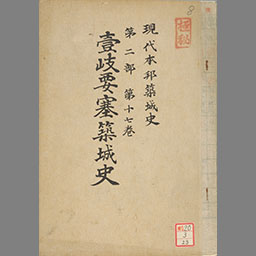 現代本邦築城史
第二部 第十七巻
壹岐要塞築城史
8
極秘